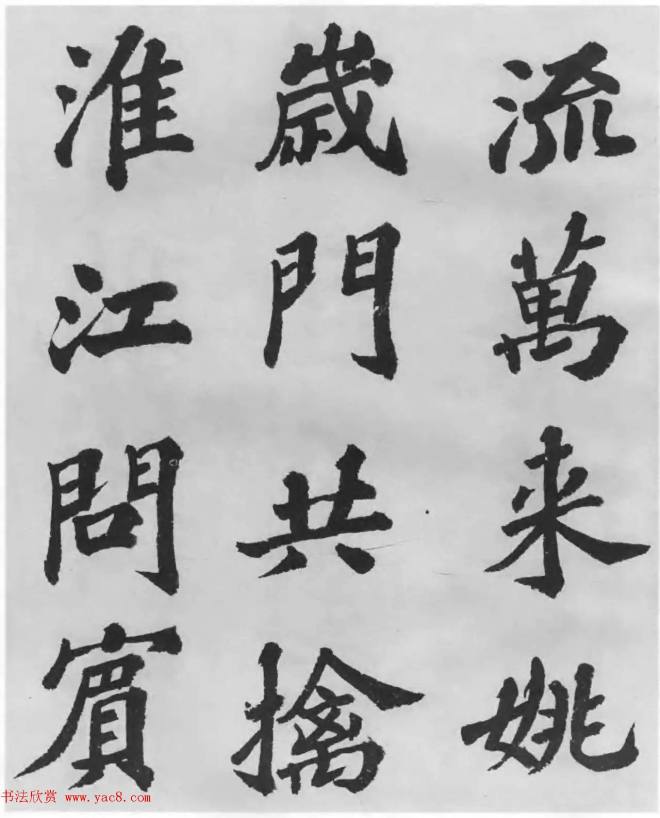 流萬来姚
歲門共擒
淮江問賔
书法欣赏 www.yac8.com